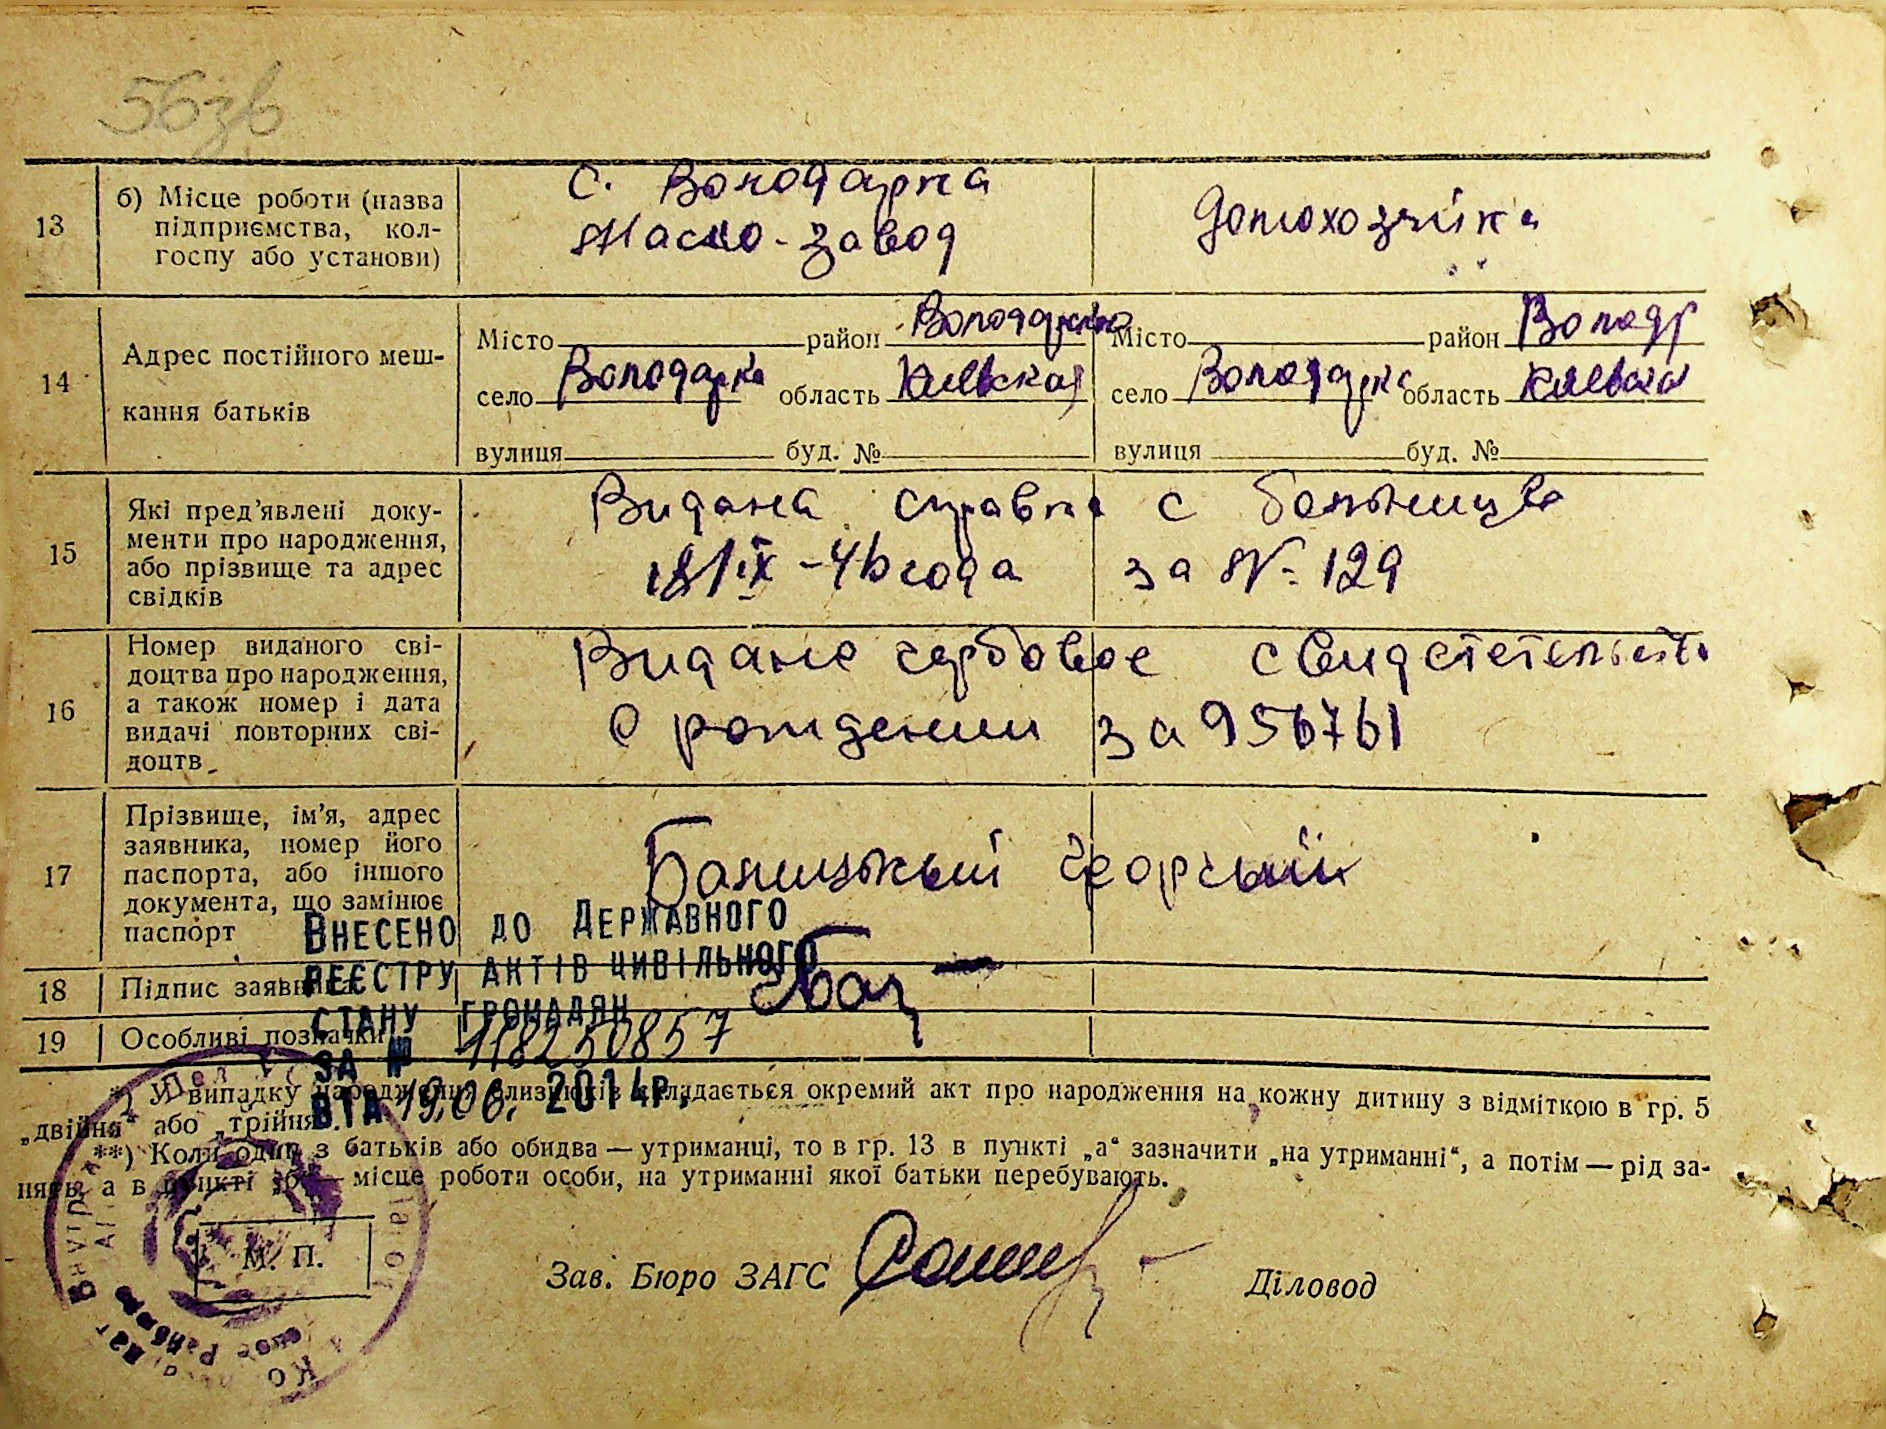 56зв
13
б) Місце роботи (назва
підприємства, кол-
госпу або установи)
с. Володарка
Масло-завод
домохозяйка
14
Адрес постійного меш-
кання батьків
Місто район Володарский
село Володарка область Киевская
вулиця буд. №
Місто район Володар
село Володарка область Киевская
вулиця буд. №
15
Які пред'явлені доку-
менти про народження,
або прізвище та адрес
свідків
Видана справка с больницы
IX-46 года за № 129
16
Номер виданого сві-
доцтва про народження,
а також номер і дата
видачі повторних сві-
доцтв
Видано гербовое свидетельство
о рождении за 956761
17
Прізвище, ім'я, адрес
заявника, номер його
паспорта, або іншого
документа, що замінює
паспорт
Георгий
18
Підпис заявника
19
Особливі позначки
Внесено до Державного
реєстру актів цивільного
стану громадян
за № 118250857
від 19.06. 2014р.
*) У випадку народження близнюків складається окремий акт про народження на кожну дитину з відміткою в гр. 5
„двійня“ або „трійня“.
**) Коли один з батьків або обидва — утриманці, то в гр. 13 в пункті „а“ зазначити „на утриманні“, а потім — рід за-
нять, а в пункті „б“ — місце роботи особи, на утриманні якої батьки перебувають.
М. П.
Зав. Бюро ЗАГС
Діловод